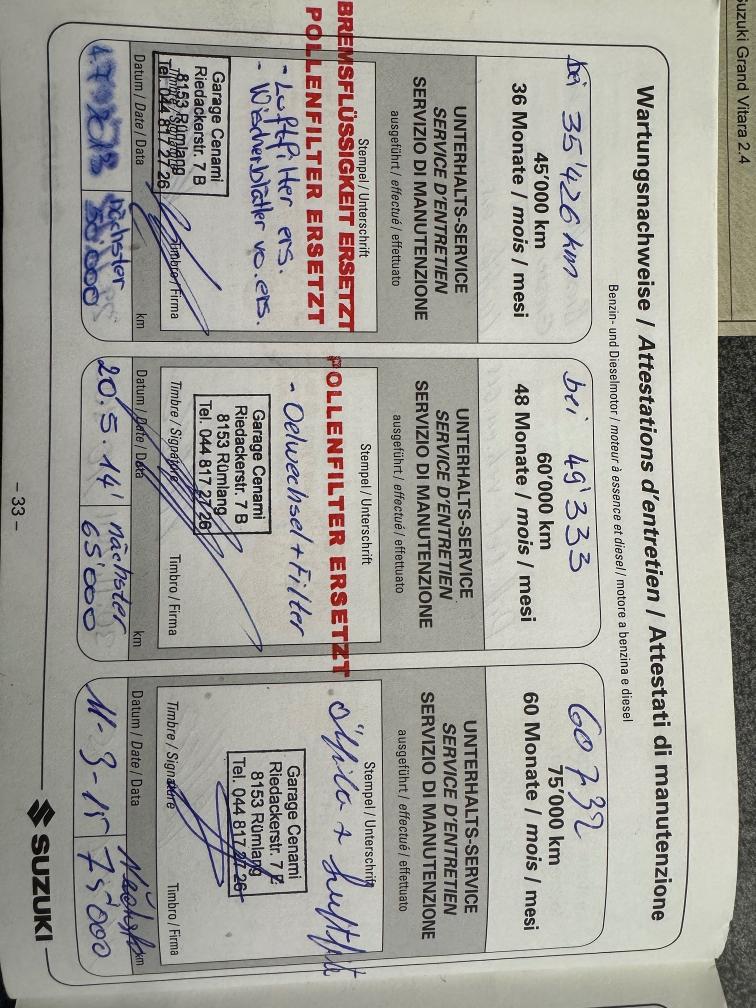 Suzuki Grand Vitara 2.4
Wartungsnachweise / Attestations d'entretien / Attestati di manutenzione
Benzin- und Dieselmotor / moteur à essence et diesel / motore a benzina e diesel
bei 35'426 km
45'000 km
36 Monate / mois / mesi
UNTERHALTS-SERVICE
SERVICE D'ENTRETIEN
SERVIZIO DI MANUTENZIONE
ausgeführt / effectué / effettuato
Stempel / Unterschrift
BREMSFLÜSSIGKEIT ERSETZT
POLLENFILTER ERSETZT
- Luftfilter ers.
- Wischerblätter vo. ers.
Garage Cenami
Riedackerstr. 7 B
8153 Rümlang
Tel. 044 817 27 26
Timbre / Signature
Timbro / Firma
Datum / Date / Data
km
nächster
50'000
bei 49'333
60'000 km
48 Monate / mois / mesi
UNTERHALTS-SERVICE
SERVICE D'ENTRETIEN
SERVIZIO DI MANUTENZIONE
ausgeführt / effectué / effettuato
Stempel / Unterschrift
POLLENFILTER ERSETZT
- Oelwechsel + Filter
Garage Cenami
Riedackerstr. 7 B
8153 Rümlang
Tel. 044 817 27 26
Timbre / Signature
Timbro / Firma
Datum / Date / Data
km
20.5.14'
nächster
65'000
60732
75'000 km
60 Monate / mois / mesi
UNTERHALTS-SERVICE
SERVICE D'ENTRETIEN
SERVIZIO DI MANUTENZIONE
ausgeführt / effectué / effettuato
Stempel / Unterschrift
Garage Cenami
Riedackerstr. 7 B
8153 Rümlang
Tel. 044 817 27 26
Timbre / Signature
Timbro / Firma
Datum / Date / Data
km
11-3-15
75'000
– 33 –
SUZUKI